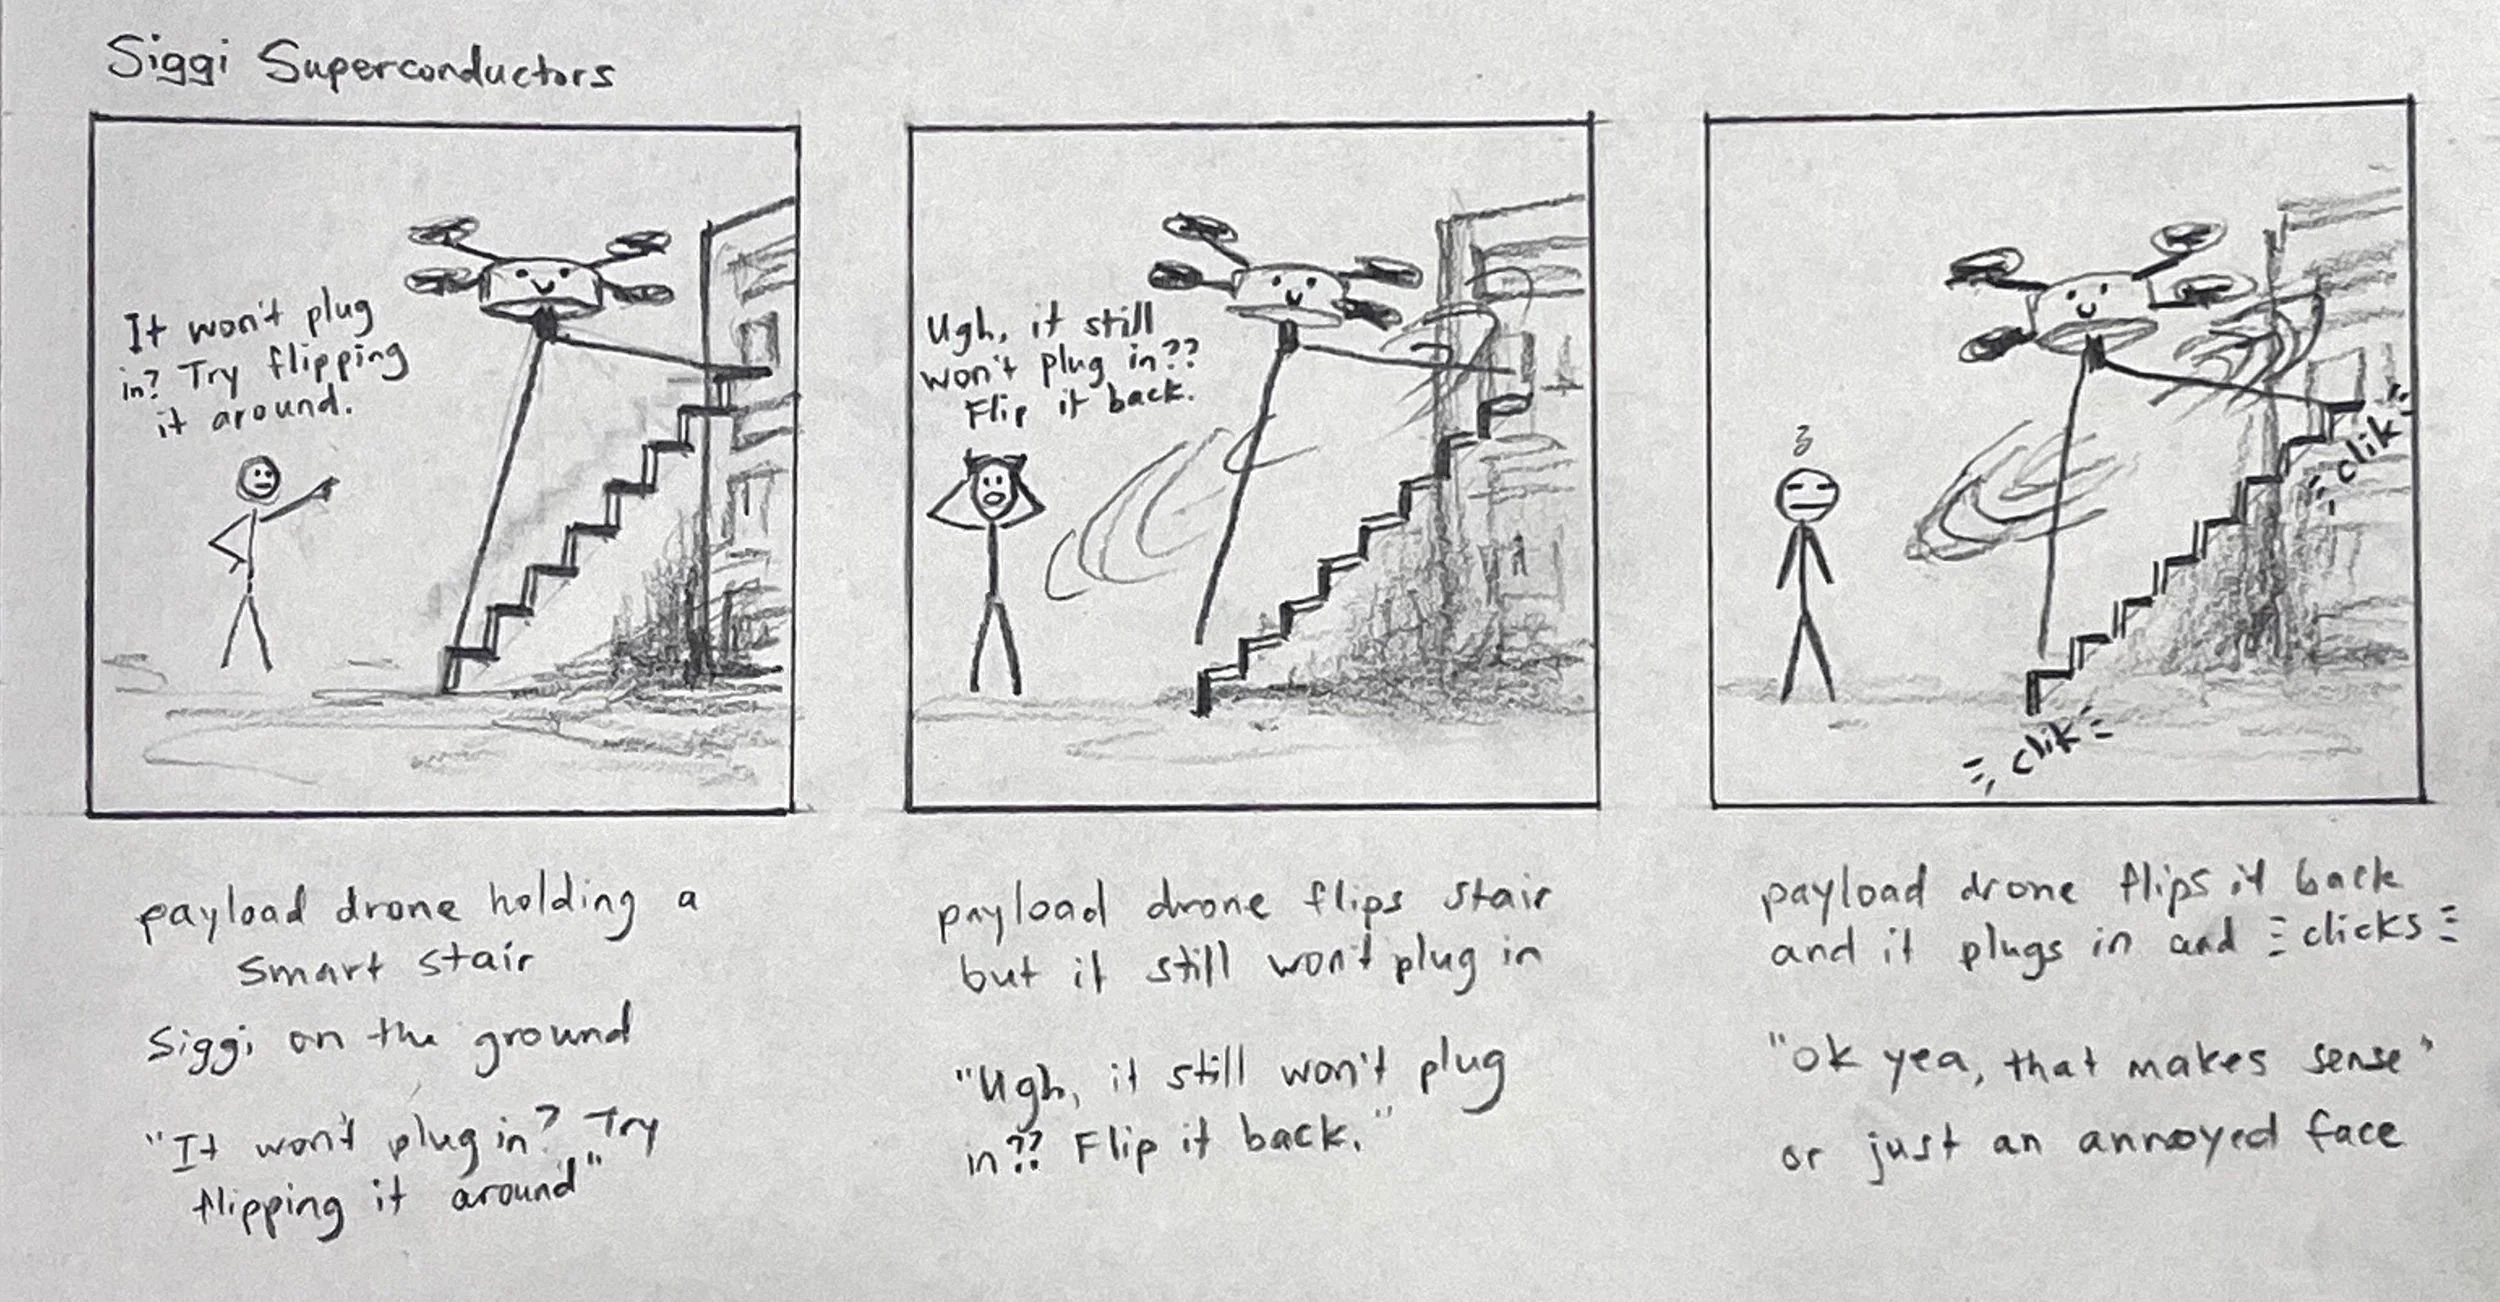 Siggi Superconductors
It won't plug
in? Try flipping
it around.
Ugh, it still
won't plug in??
Flip it back.
clik
clik
payload drone holding a
smart stair
Siggi on the ground
"It won't plug in? Try
flipping it around"
payload drone flips stair
but it still won't plug in
"Ugh, it still won't plug
in?? Flip it back."
payload drone flips it back
and it plugs in and clicks
"ok yea, that makes sense"
or just an annoyed face